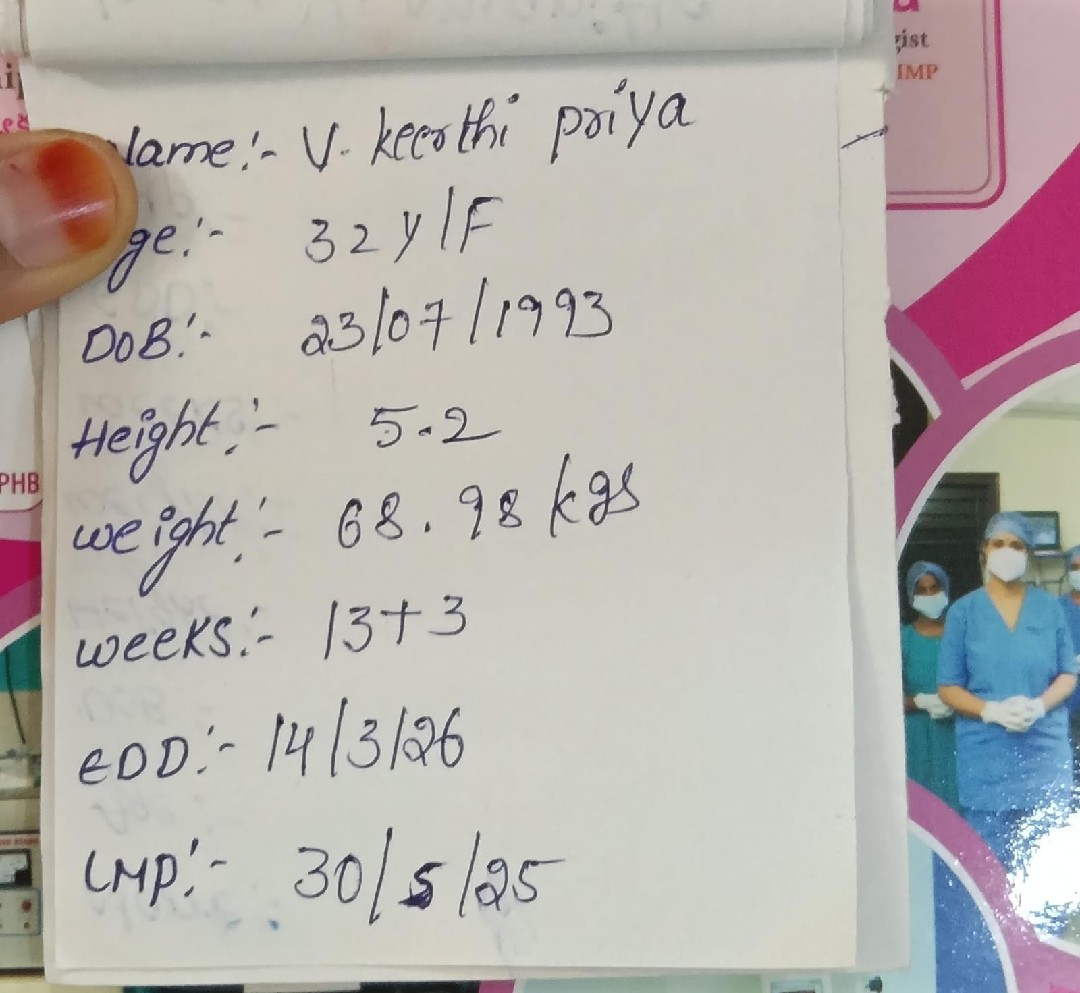 gist
IMP
PHB
lame:- V. keerthi priya
ge:- 32 y/F
DOB:- 23/07/1993
Height:- 5.2
weight:- 68.98 kgs
weeks:- 13+3
EDD:- 14/3/26
LMP:- 30/5/25